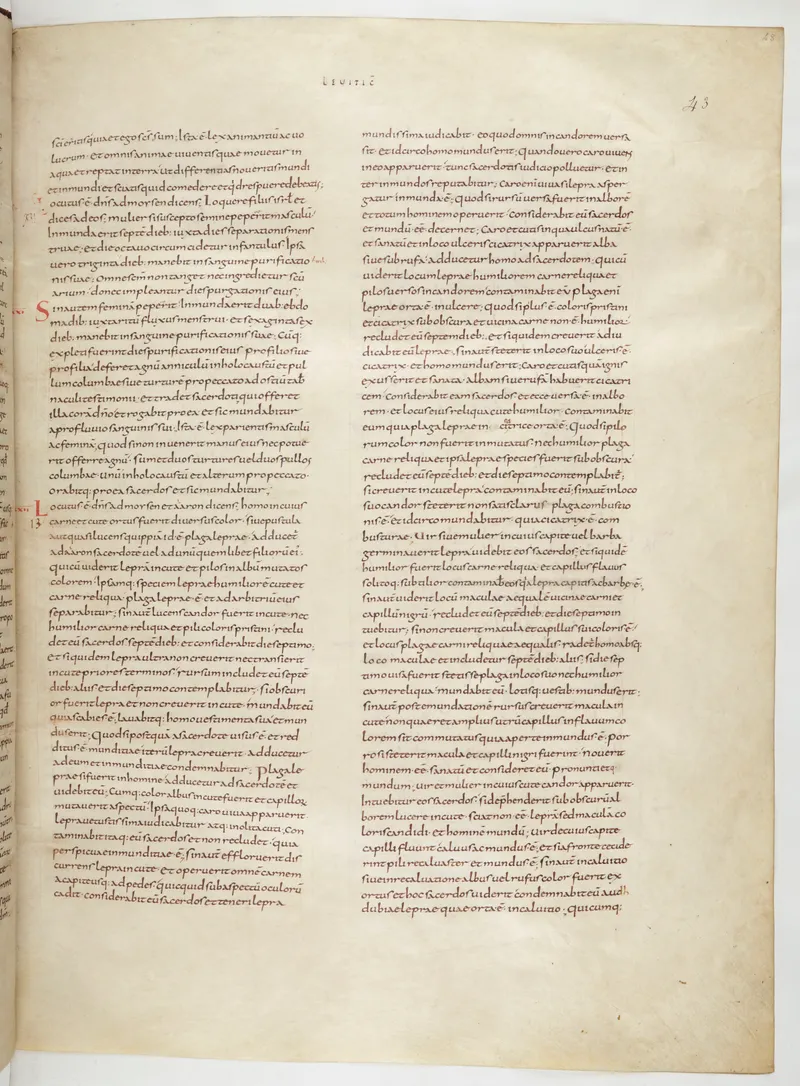 LEVITIC̄
43
sc̄i eritis quia et ego sc̄s sum; Ista ē lex animantiū ac uo
lucrum · et omnis animae uiuentis quae mouetur in
aqua et reptat in terra ut differentias noueritis mundi
et inmundi et sciatis quid comedere et qd respuere debeatis;
Locutus ē dn̄s ad mosen dicens; Loquere filiis isrl et
dices ad eos; mulier si suscepto semine pepererit masculū
Inmunda erit septē dieb: iuxta dies separationis mens
truae; et die octauo circumcidetur infantulus; Ipsa
uero triginta dieb: manebit in sanguine purificatio
nis suae; Omne sc̄m non tanget nec ingredietur scū
arium · donec impleantur dies purgationis eius;
Sin autem feminā pepererit Inmunda erit duab: ebdo
madib: iuxta ritū fluxus menstrui · et sexaginta sex
dieb: manebit in sanguine purificationis suae; Cūq:
expleti fuerint dies purificationis eius pro filio siue
pro filia · deferet agnū anniculū in holocaustū et pul
lum columbae siue turturē pro peccato ad ostiū tab
naculi testimonii · et tradet sacerdoti · qui offeret
illa corā dn̄o et rogabit pro ea · et sic mundabitur
a profluuio sanguinis sui; Ista ē lex parientis masculū
ac feminā; quod si non inuenerit manus eius nec potue
rit offerre agnū · sumet duos turtures uel duos pullos
columbae · unū in holocaustū et alterum pro peccato ·
orabitq: pro ea sacerdos et sic mundabitur;
13
Locutus ē dn̄s ad mosen et aaron dicens; homo in cuius
carne et cute ortus fuerit diuersus color · siue pustula
aut quasi lucens quippiā · id ē plaga leprae · adducet̄
ad aaron sacerdotē uel ad unū quemlibet filiorū ei:
qui cū uiderit leprā in cute et pilos in albū mutatos
colorem · Ipsāq: speciem leprae humiliorē cute et
carne reliqua · plaga leprae ē · et ad arbitriū eius
separabitur; sin aut̄ lucens candor fuerit in cute · nec
humilior carne reliqua et pili coloris pristini · reclu
det eū sacerdos septē dieb: et considerabit die septimo;
et si quidem lepra ultra non creuerit nec transierit
in cute priores terminos; rursum includet eū septē
dieb: aliis et die septimo contemplabitur; si obscuri
or fuerit lepra et non creuerit in cute · mundabit eū
quia scabies ē; lauabitq: homo uestimenta sua et mun
dus erit; quod si postquā a sacerdote uisus ē et red
ditus ē munditiae iterū lepra creuerit · adducetur
ad eum et inmunditiae condemnabitur; plaga le
prae si fuerit in homine adducetur ad sacerdotē et
uidebit eū; Cumq: color albus in cute fuerit et capillos
mutauerit aspectū; Ipsa quoq: caro uiua apparuerit ·
lepra uetustissima iudicabitur atq: inolita cuti; Con
taminabit itaq: eū sacerdos et non recludet · quia
perspicua inmunditiae ē; sin aut̄ effloruerit dis
currens lepra in cute · et operuerit omnē carnem
a capite usq: ad pedes quicquid sub aspectū oculorū
cadit · considerabit eū sacerdos et teneri lepra
mundissima iudicabit · eo quod omnis in candorem uersa
sit · et idcirco homo mundus erit; quando uero caro uiuens
in eo apparuerit · tunc sacerdotis iudicio polluetur · et in
ter inmundos reputabitur; Caro enī uiua si lepra asper
gatur inmunda ē; quod si rursū uersa fuerit in alborē
et totum hominem operuerit · considerabit eū sacerdos
et mundū eē decernet; Caro et cutis in qua ulcus natū ē ·
et sanatū et in loco ulceris cicatrix apparuerit alba
siue subrufa · adducetur homo ad sacerdotem; qui cū
uiderit locum leprae humiliorem carne reliqua et
pilos uersos in candorem · contaminabit eū; plaga enī
leprae orta ē in ulcere; quod si pilus ē coloris pristini
et cicatrix subobscura et uicina carne non ē humilior ·
recludet eū septem dieb:; et si quidem creuerit adiu
dicabit eū leprae · sin aut̄ steterit in loco suo ulceris ē
cicatrix · et homo mundus erit; Caro et cutis quā ignis
exusserit et sanata · albam siue rufā habuerit cicatri
cem · considerabit eam sacerdos et ecce uersa ē in albo
rem · et locus eius reliqua cute humilior · contaminabit
eum quia plaga leprae in cicatrice orta ē; quod si pilo
rum color non fuerit inmutatus · nec humilior plaga
carne reliqua · et ipsa leprae species fuerit subobscura ·
recludet eū septē dieb: et die septimo contemplabit̄;
si creuerit in cute lepra · contaminabit eū; sin aut̄ in loco
suo candor steterit non satis clarus · plaga combustio
nis ē · et idcirco mundabitur · quia cicatrix ē com
busturae · Uir siue mulier in cuius capite uel barba
germinauerit lepra · uidebit eos sacerdos · et si quidē
humilior fuerit locus carne reliqua · et capillus flauus
solitoq: subtilior · contaminabit eos quia lepra capitis ac barbae ē;
sin aut̄ uiderit locū maculae aequalē uicinae carni et
capillū nigrū · recludet eū septē dieb: et die septimo in
tuebitur; si non creuerit macula et capillus sui coloris ē ·
et locus plagae carni reliquae aequalis · radet̄ homo absq:
loco maculae et includetur septē dieb: aliis; si die sep
timo uisa fuerit stetisse plaga in loco suo nec humilior
carne reliqua · mundabit eū · lotisq: uestib: mundus erit;
sin aut̄ post emundationē rursus creuerit macula in
cute · non quaeret amplius utrū capillus in flauum co
lorem sit commutatus quia aperte inmundus ē · por
ro si steterit macula et capilli nigri fuerint · nouerit
hominem eē sanatū et confidenter eū pronuntiet
mundum; uir et mulier in cuius cute candor apparuerit ·
Intuebitur eos sacerdos · si deprehenderit subobscurū al
borem lucere in cute · sciat non eē leprā sed macula co
loris candidi · et hominē mundū; uir de cuius capite
capilli fluunt caluus ac mundus ē · et si a fronte cecide
rint pili recaluaster et mundus ē; sin aut̄ in caluitio
siue in recaluatione albus uel rufus color fuerit ex
ortus et hoc sacerdos uiderit condemnabit eū haud
dubiae leprae quae orta ē in caluitio · quicumq: